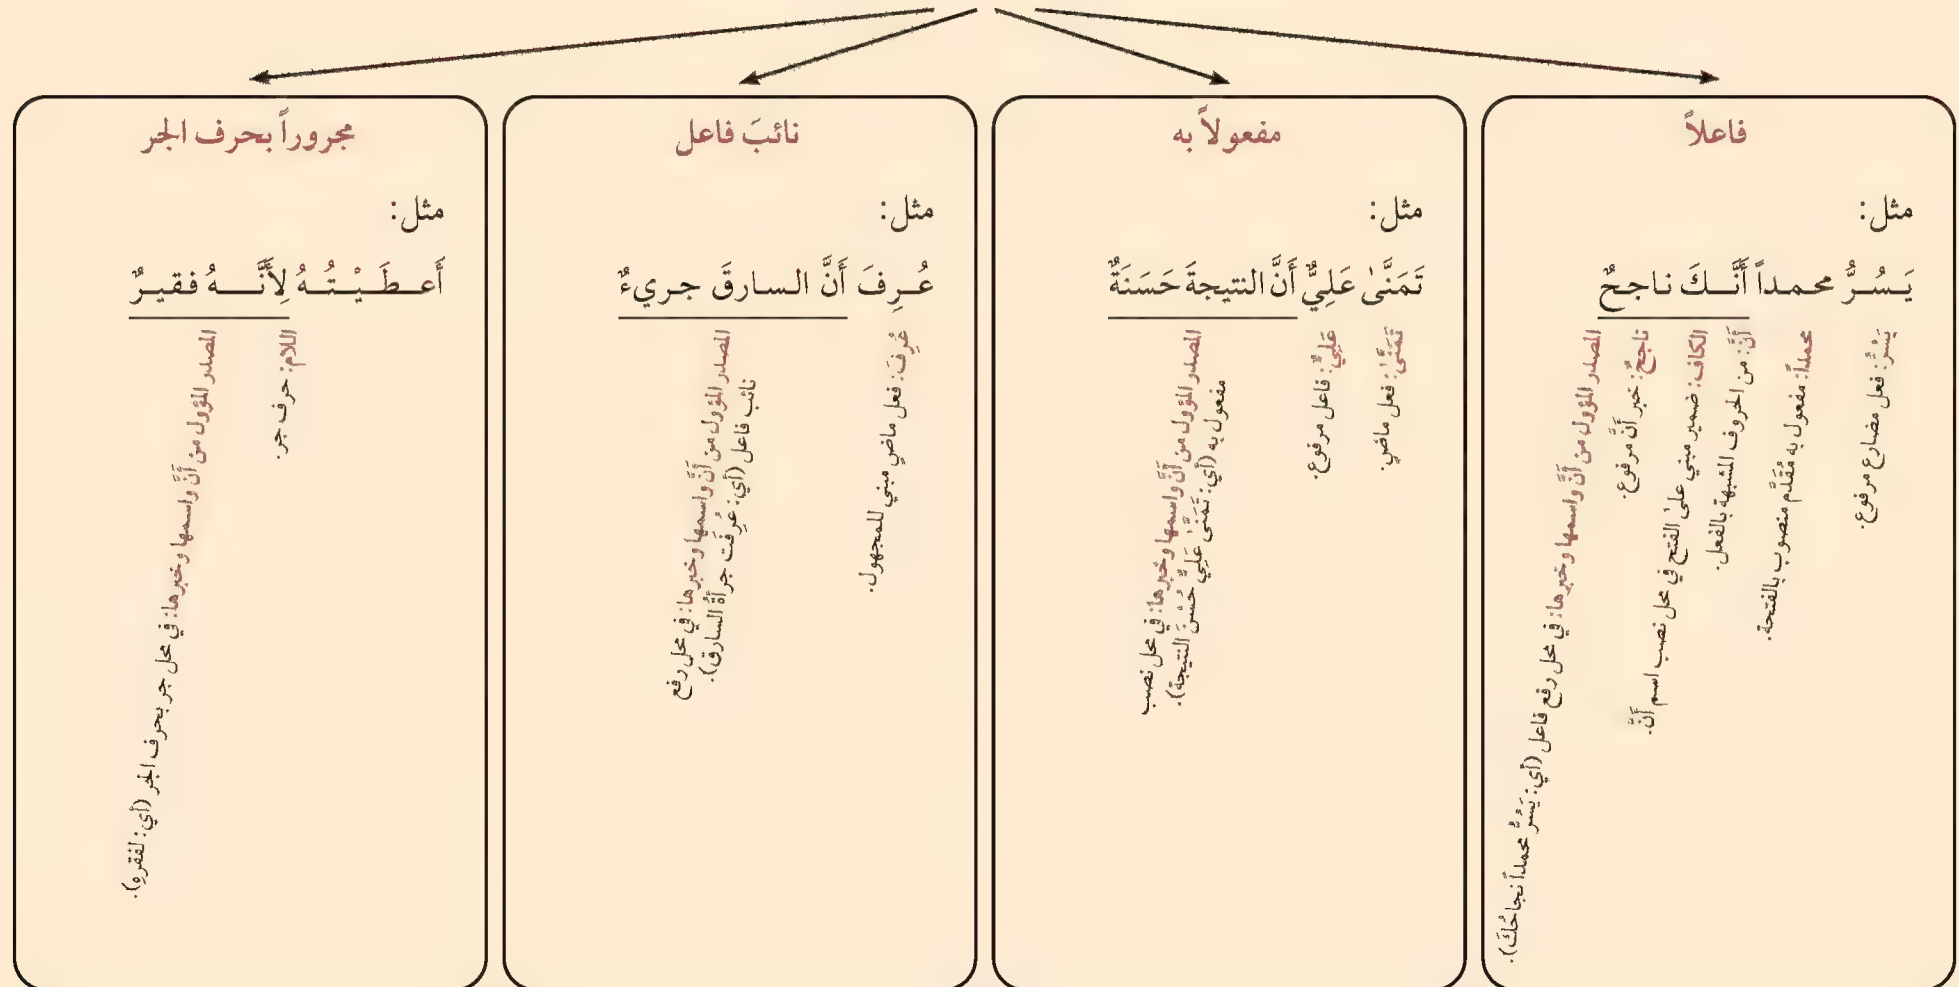 فاعلاً
مثل:
يَسُرُّ محمداً أَنَّكَ ناجحٌ
يَسُرُّ: فعل مضارع مرفوع.
محمداً: مفعول به مُقَدَّم منصوب بالفتحة.
أَنَّ: من الحروف المشبهة بالفعل.
الكاف: ضمير مبني على الفتح في محل نصب اسم أَنَّ.
ناجحٌ: خبر أَنَّ مرفوع.
المصدر المؤول من أَنَّ واسمها وخبرها: في محل رفع فاعل (أي: يَسُرُّ محمداً نجاحُكَ).
مفعولاً به
مثل:
تَمَنَّىٰ عَلِيٌّ أَنَّ النتيجةَ حَسَنَةٌ
تَمَنَّىٰ: فعل ماضٍ.
عَلِيٌّ: فاعل مرفوع.
المصدر المؤول من أَنَّ واسمها وخبرها: في محل نصب
مفعول به (أي: تَمَنَّىٰ عَلِيٌّ حُسْنَ النتيجة).
نائبَ فاعل
مثل:
عُرِفَ أَنَّ السارقَ جريءٌ
عُرِفَ: فعل ماضٍ مبني للمجهول.
المصدر المؤول من أَنَّ واسمها وخبرها: في محل رفع
نائب فاعل (أي: عُرِفَت جرأةُ السارق).
مجروراً بحرف الجر
مثل:
أَعطَيْتُهُ لِأَنَّهُ فقيرٌ
اللام: حرف جر.
المصدر المؤول من أَنَّ واسمها وخبرها: في محل جر بحرف الجر (أي: لفقرِهِ).